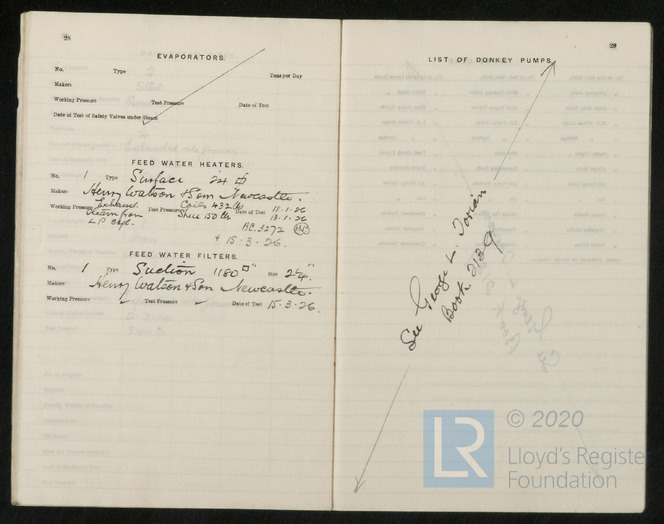 28
EVAPORATORS.
No. Type Tons per Day
Makers
Working Pressure Test Pressure Date of Test
Date of Test of Safety Valves under Steam
FEED WATER HEATERS.
No. 1 Type Surface
Makers Henry Watson & Son Newcastle.
Working Pressure Exhaust Test Pressure Coils 432 lb Date of Test 11-1-26
steam from Shell 150 lb 13-1-26
L.P. Cyl. 3272
+ 15-3-26.
FEED WATER FILTERS.
No. 1 Type Suction 1180 □" Size 2¼"
Makers Henry Watson & Son Newcastle.
Working Pressure Test Pressure Date of Test 15-3-26.
29
LIST OF DONKEY PUMPS.
See George L. Torian
Book 2139
LR
© 2020
Lloyd's Register
Foundation